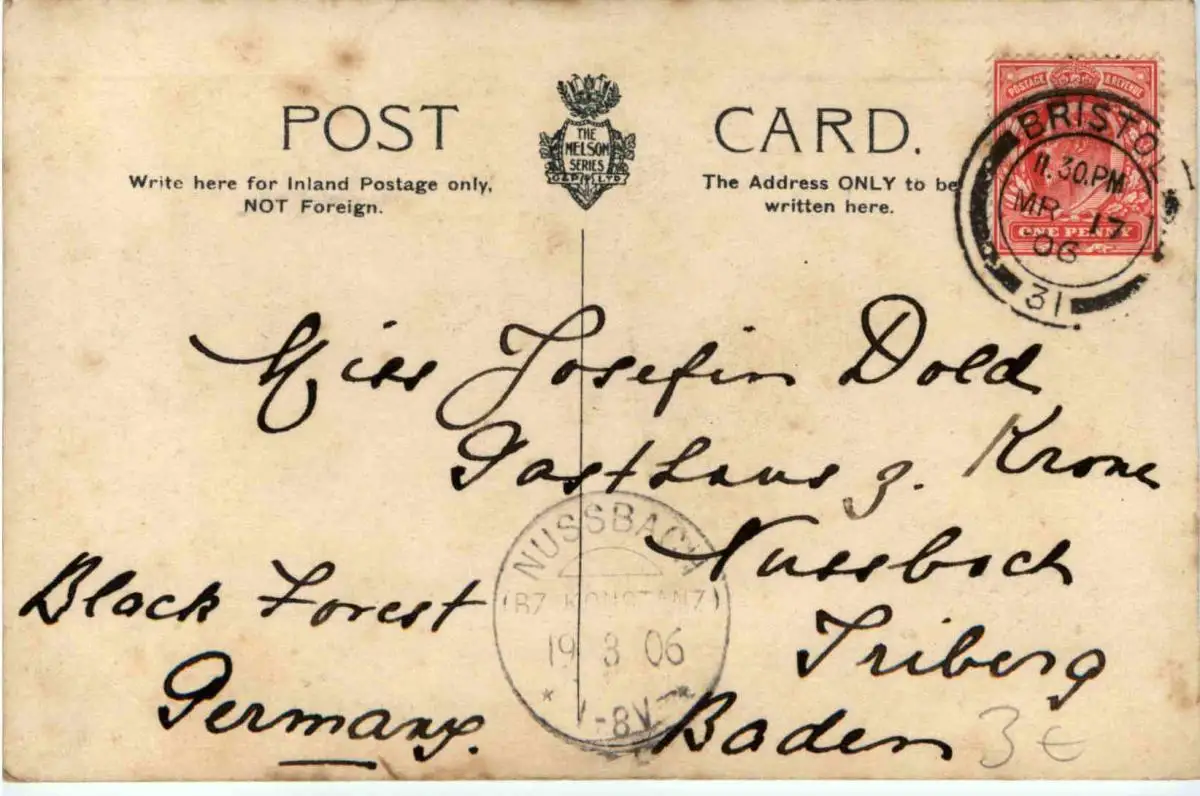 POST CARD.
THE
NELSON
SERIES
G&P LTD
Write here for Inland Postage only,
NOT Foreign.
The Address ONLY to be
written here.
POSTAGE & REVENUE
ONE PENNY
BRISTOL
11.30.PM
MR 17
06
31
Miss Josefin Dold
Gasthaus z. Krone
Nussbach
Triberg
Baden
Black Forest
Germany.
NUSSBACH
(BZ. KONSTANZ)
19 3 06
-8V
3€